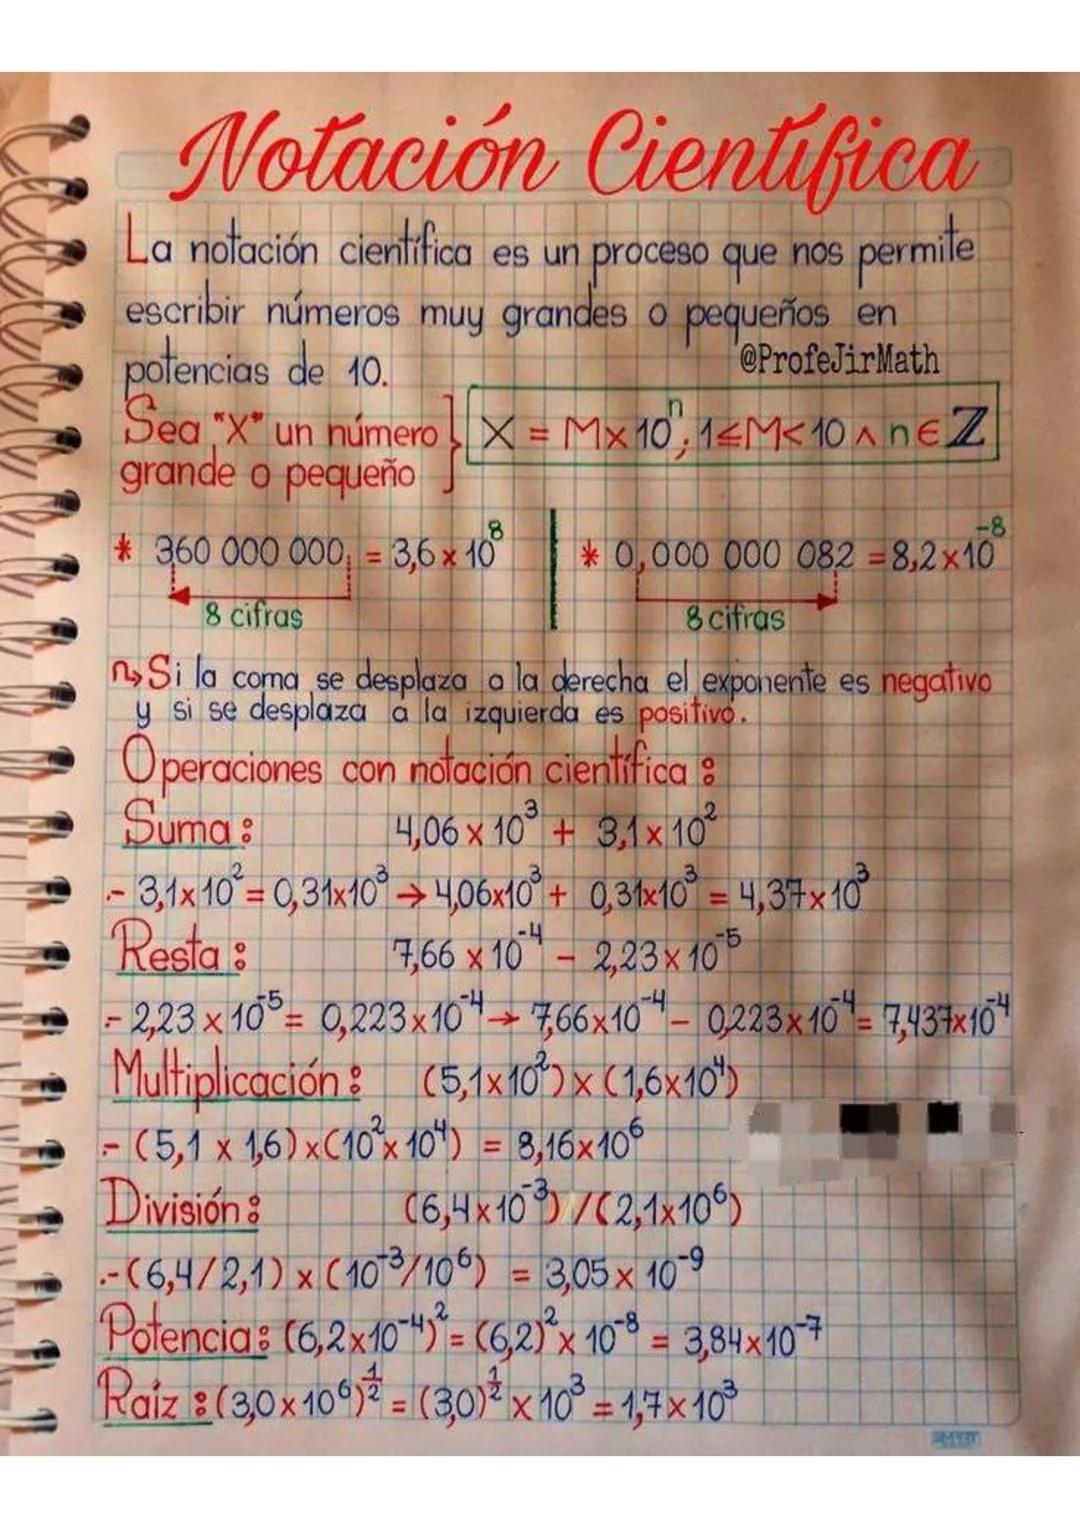 Notación Científica
La notación científica es un proceso que nos permite
escribir números muy grandes o pequeños en
potencias de 10.
@ProfeJirMath
Sea "X" un número
grande o pequeño
X = M x 10ⁿ; 1≤M<10 ∧ n∈ℤ
* 360 000 000, = 3,6 x 10⁸
8 cifras
* 0,000 000 082 = 8,2 x 10⁻⁸
8 cifras
Si la coma se desplaza a la derecha el exponente es negativo
y si se desplaza a la izquierda es positivo.
Operaciones con notación científica:
Suma: 4,06 x 10³ + 3,1 x 10²
.- 3,1x10² = 0,31x10³ → 4,06x10³ + 0,31x10³ = 4,37x10³
Resta: 7,66 x 10⁻⁴ - 2,23 x 10⁻⁵
.- 2,23 x 10⁻⁵ = 0,223x10⁻⁴ → 7,66x10⁻⁴ - 0,223x10⁻⁴ = 7,437x10⁻⁴
Multiplicación: (5,1x10²) x (1,6x10⁴)
.- (5,1 x 1,6) x (10² x 10⁴) = 8,16x10⁶
División: (6,4x10⁻³) / (2,1x10⁶)
.- (6,4/2,1) x (10⁻³/10⁶) = 3,05 x 10⁻⁹
Potencia: (6,2x10⁻⁴)² = (6,2)² x 10⁻⁸ = 3,84x10⁻⁷
Raíz: (3,0x10⁶)^½ = (3,0)^½ x 10³ = 1,7x10³